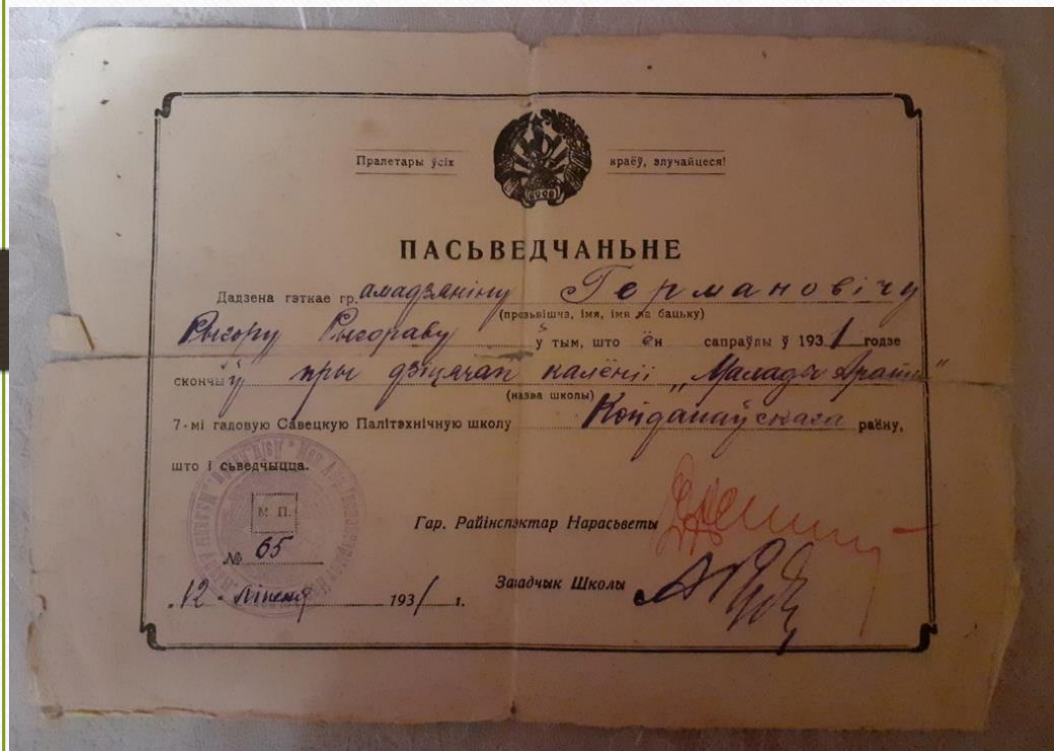 Пралетары ўсіх краёў, злучайцеся!
ПАСЬВЕДЧАНЬНЕ
Дадзена гэткае гр.амадзяніну Германовічу
(прозьвішча, імя, імя па бацьку)
Рыгору Рыгораву ў тым, што ён сапраўды ў 1931 годзе
скончыў пры дзіцячай калёніі „Маладая Араты"
(назва школы)
7-мі гадовую Савецкую Палітэхнічную школу Койданаўскага раёну,
што і сьведчыцца.
М. П.
Гар. Райінспэктар Нарасьветы
№ 65
Загадчык Школы
„12 - ліпеня 1931 г.